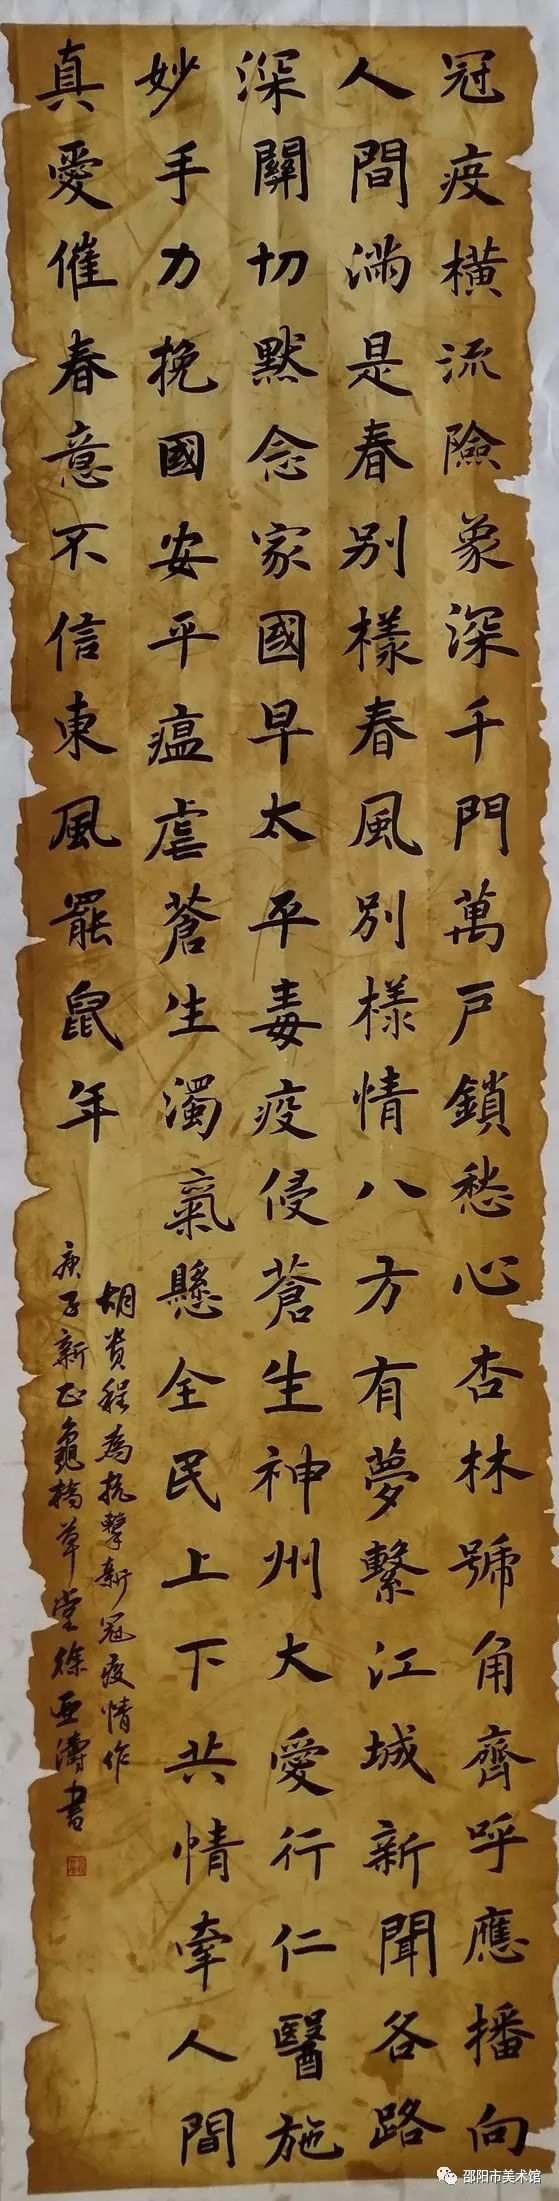 冠疫橫流險象深千門萬戶鎖愁心杏林號角齊呼應播向
人間滿是春別樣春風別樣情八方有夢繫江城新聞各路
深關切默念家國早太平毒疫侵蒼生神州大愛行仁醫施
妙手力挽國安平瘟虐蒼生濁氣懸全民上下共情牽人間
真愛催春意不信東風罷鼠年
胡贵程為抗擊新冠疫情作
庚子新正龜橋草堂徐亚濤書
邵阳市美术馆